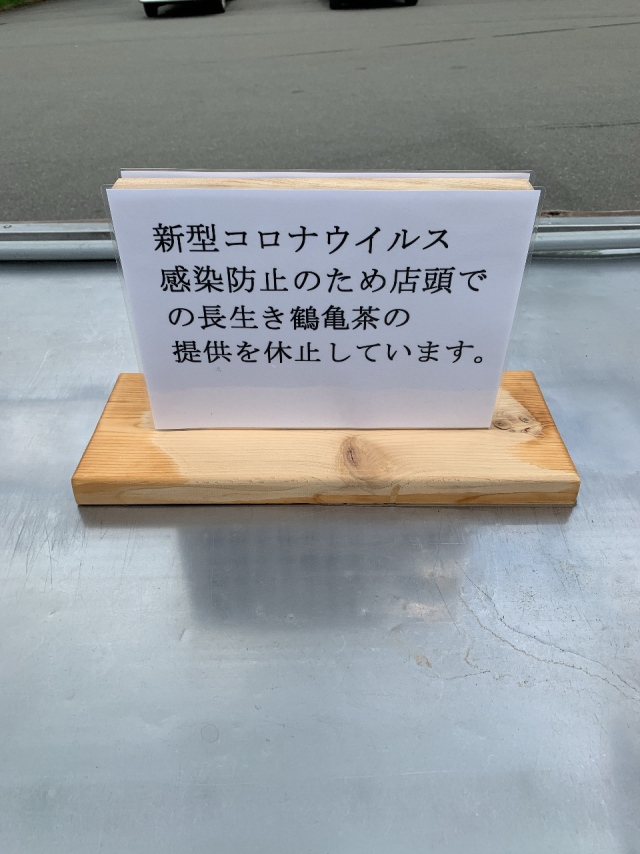 新型コロナウイルス
感染防止のため店頭で
の長生き鶴亀茶の
提供を休止しています。